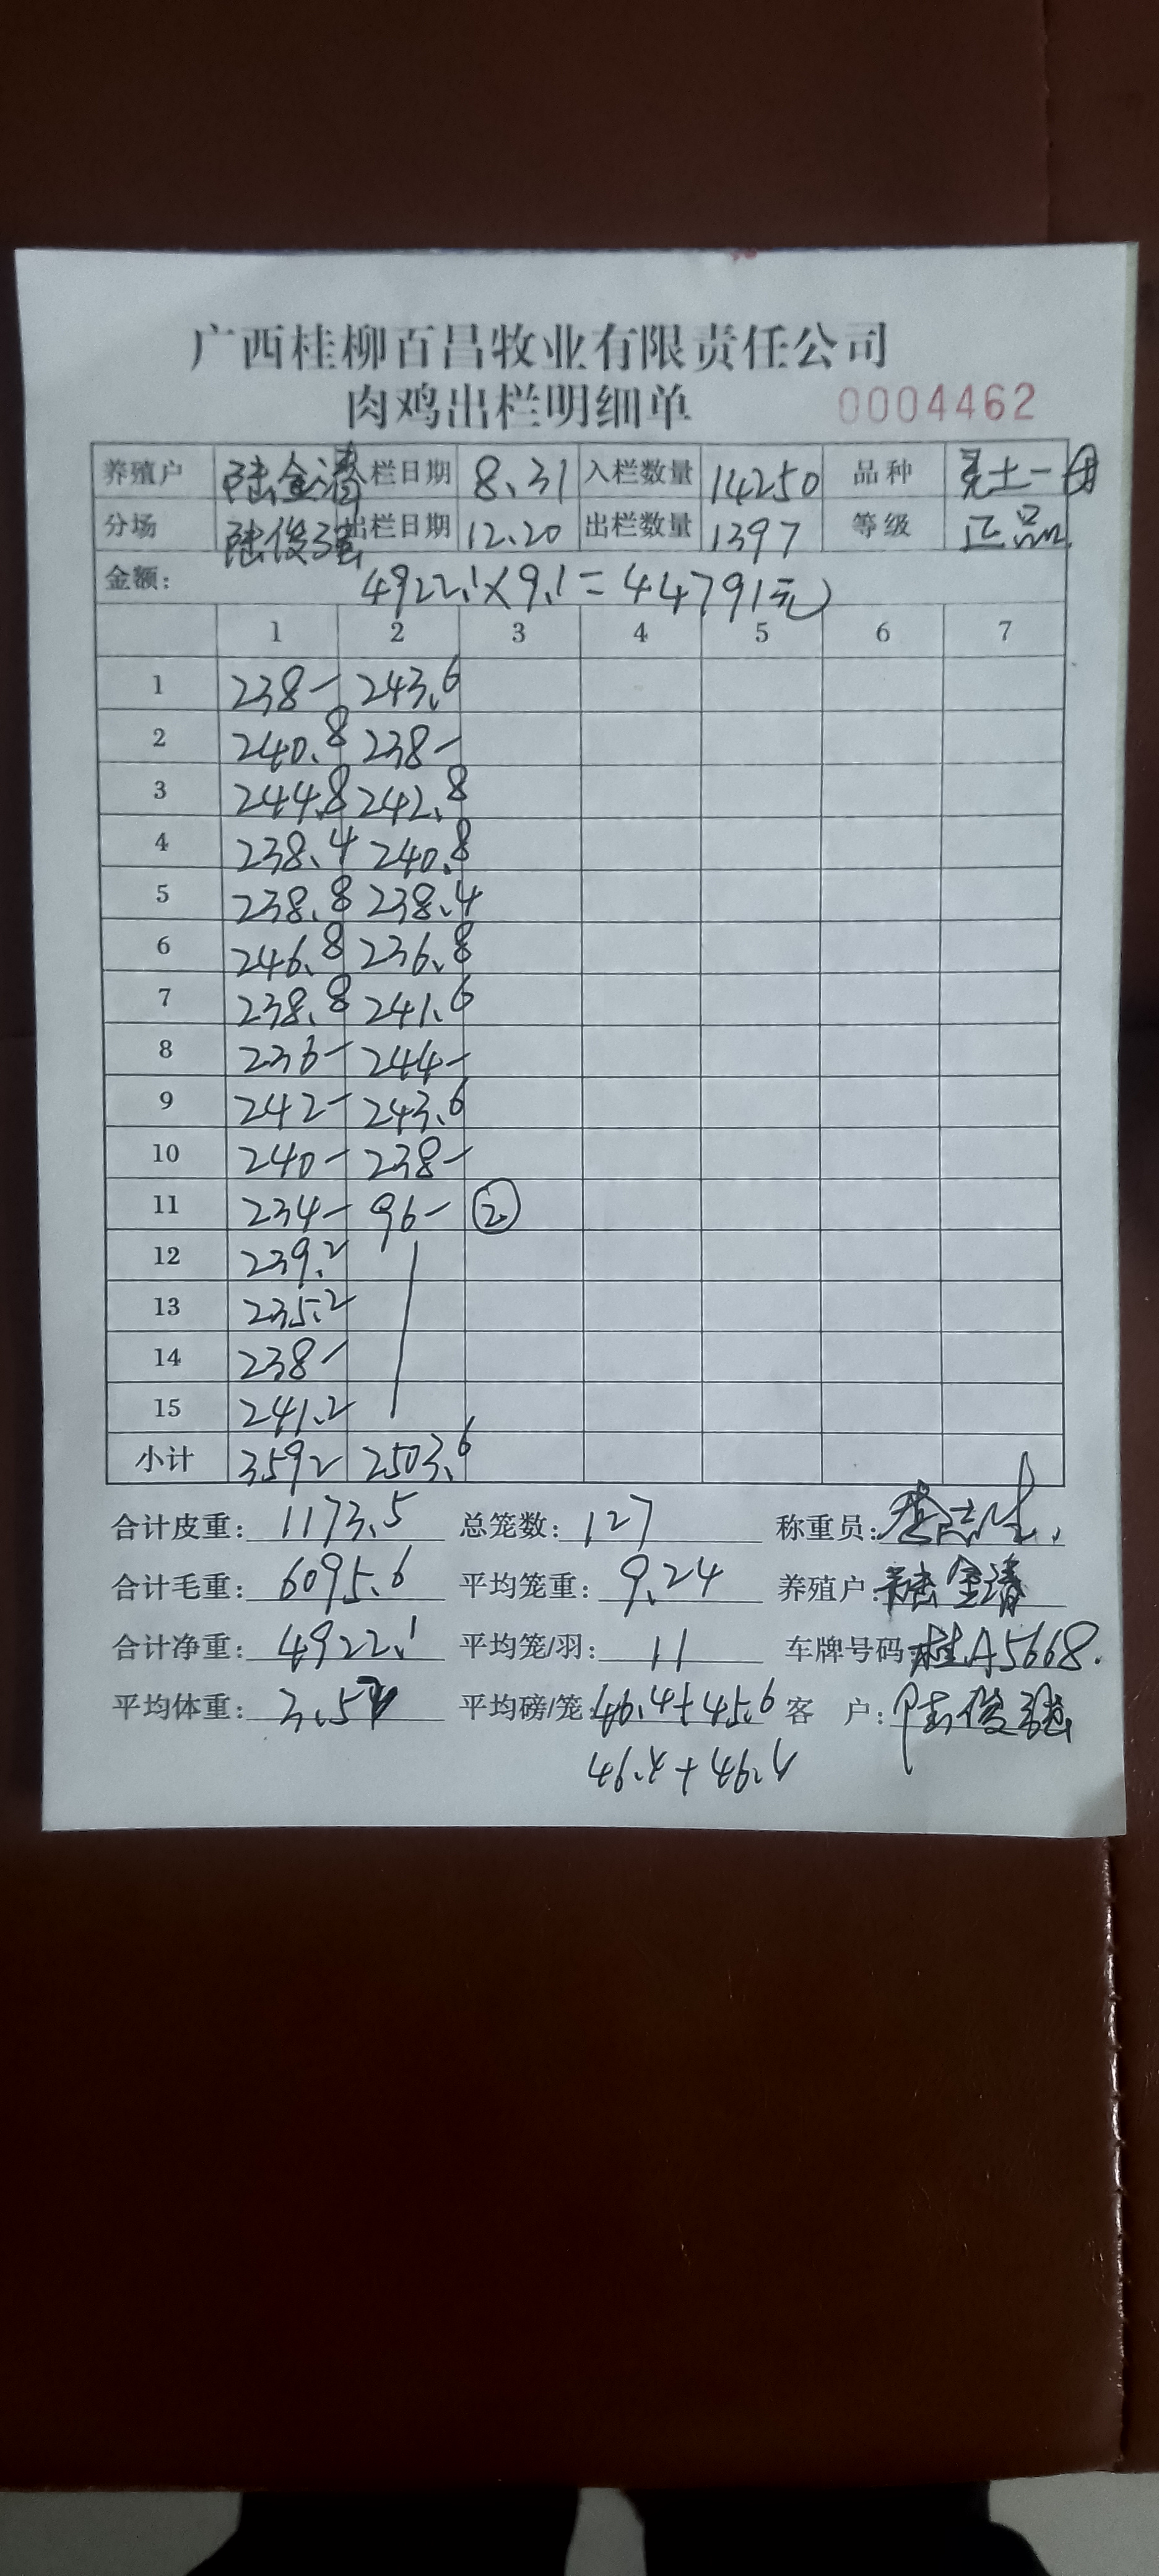 广西桂柳百昌牧业有限责任公司
肉鸡出栏明细单 0004462
养殖户 陆金清 栏日期 8.31 入栏数量 14250 品种 土一母
分场 陆俊强 出栏日期 12.20 出栏数量 1397 等级 正品
金额: 4922.1×9.1=44791元
1 2 3 4 5 6 7
1 238- 243.6
2 240.8 238-
3 244.8 242.8
4 238.4 240.8
5 238.8 238.4
6 246.8 236.8
7 238.8 241.6
8 236- 244-
9 242- 243.6
10 240- 238-
11 234- 96- ②
12 239.2
13 235.2
14 238-
15 241.2
小计 3592 2503.6
合计皮重: 1173.5 总笼数: 127 称重员:
合计毛重: 6095.6 平均笼重: 9.24 养殖户: 陆金清
合计净重: 4922.1 平均笼/羽: 11 车牌号码: 桂A5668.
平均体重: 3.5 平均磅/笼: 46.4+45.6 客 户: 陆俊强
46.4+46.4